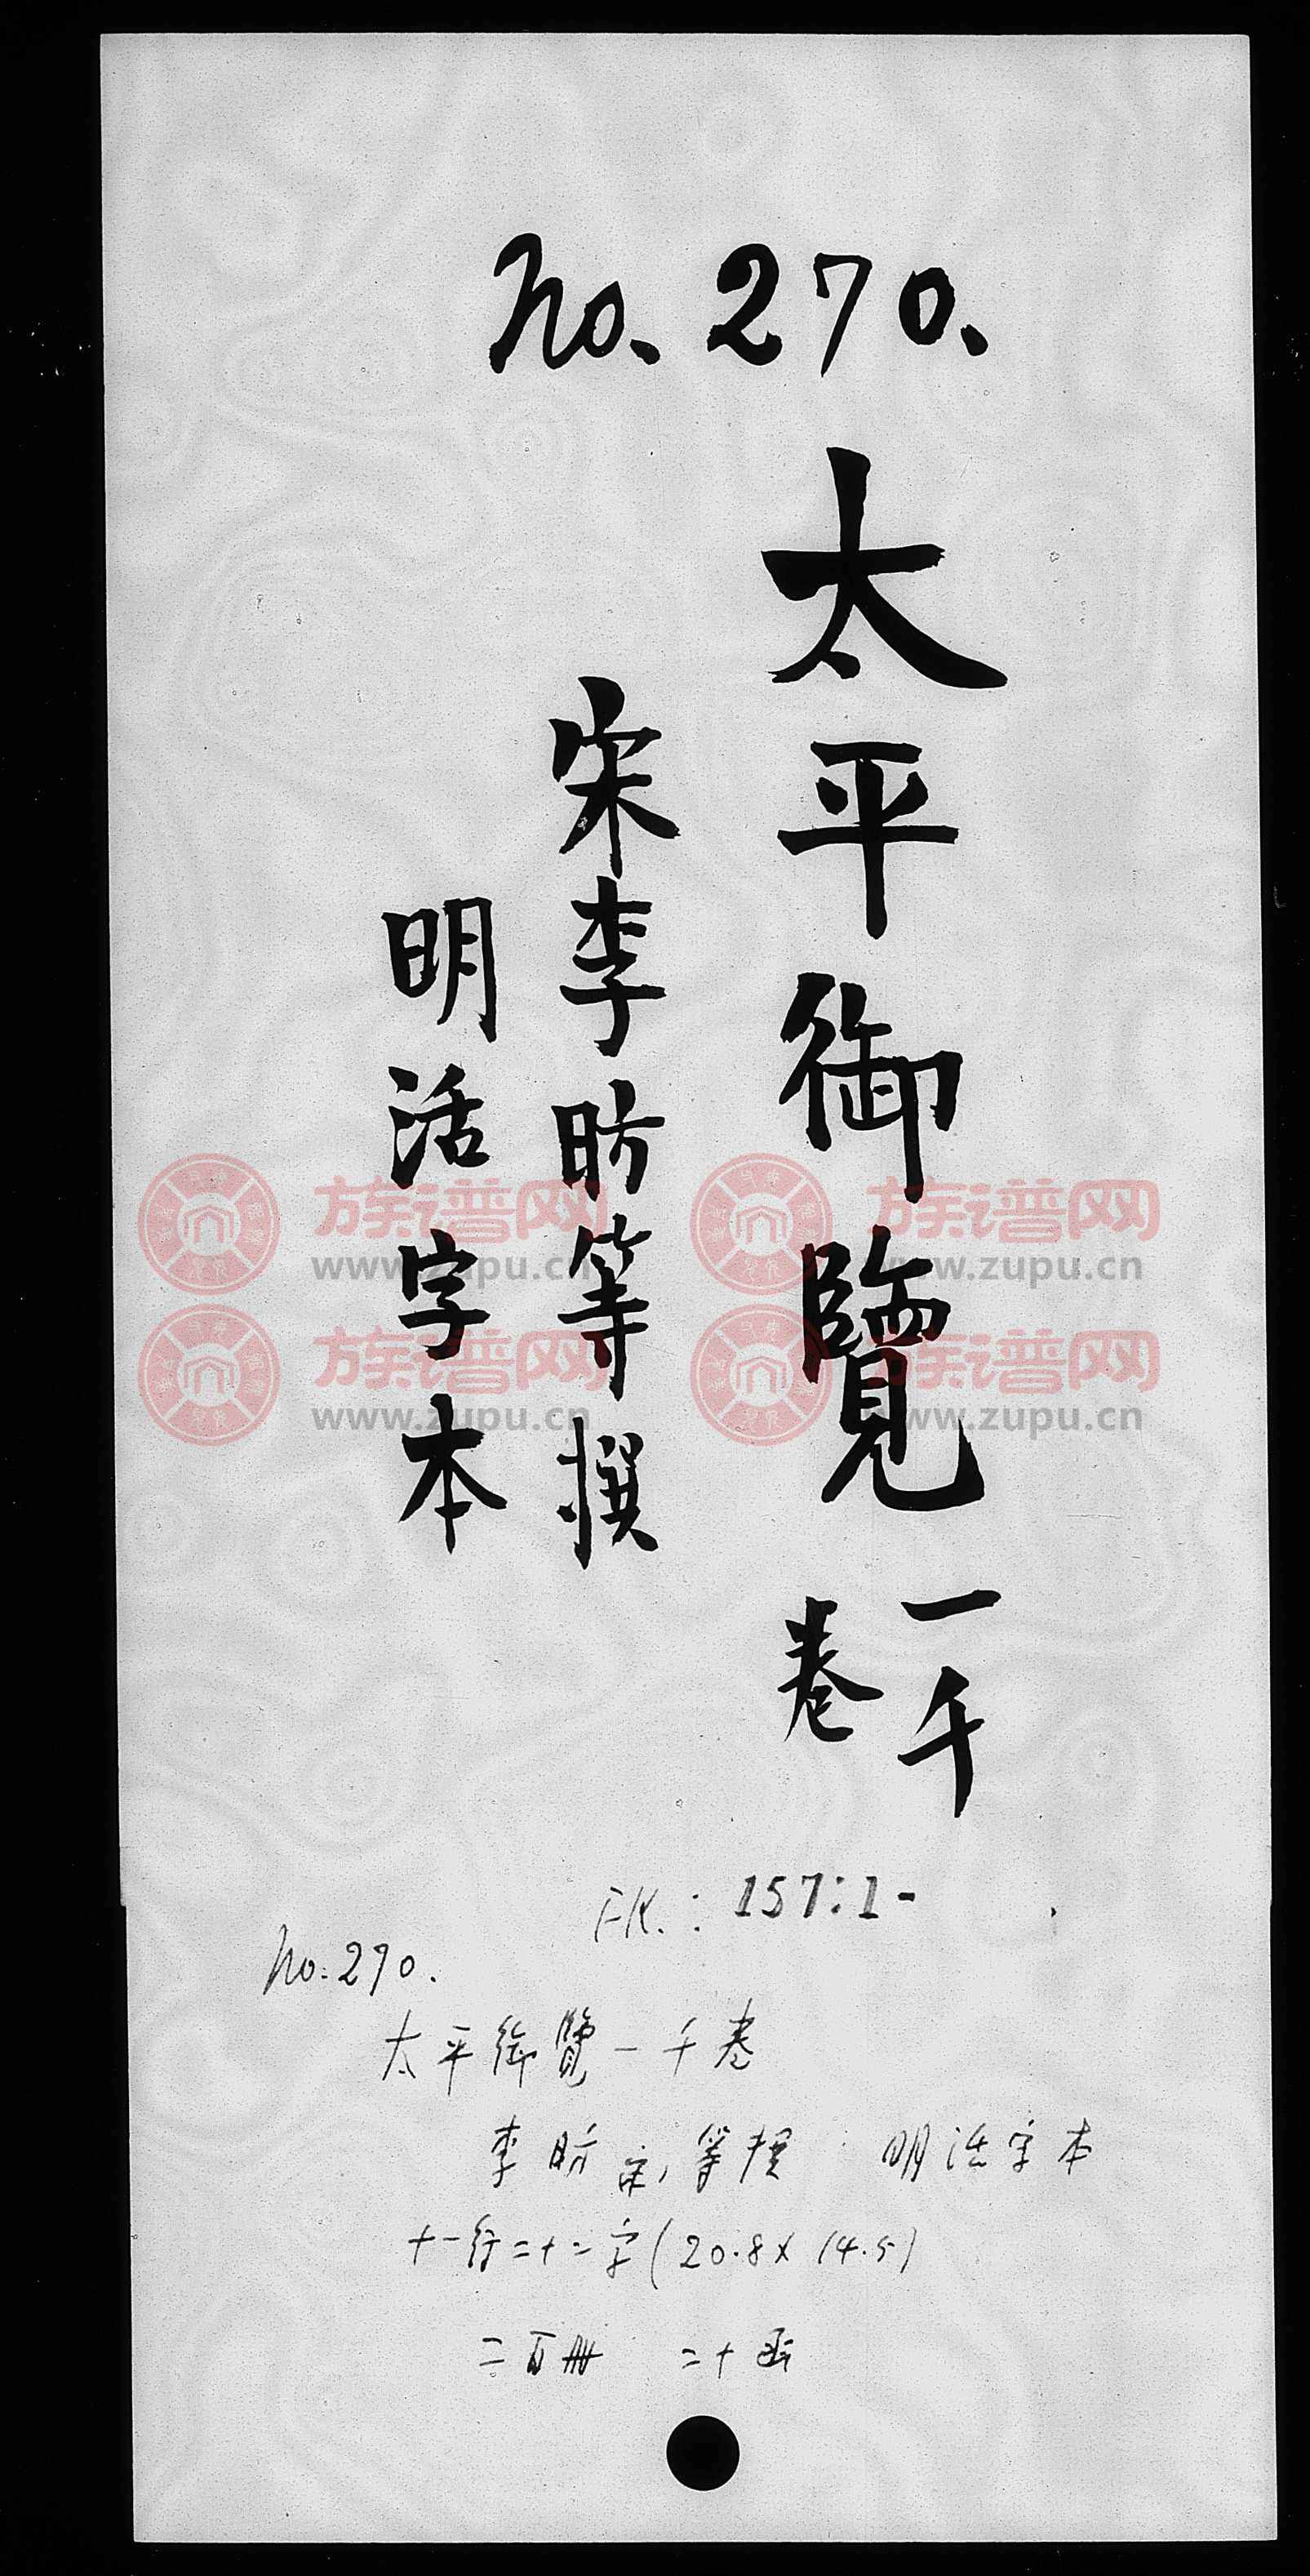 no. 270.
太平御覽一千卷
宋李昉等撰
明活字本
FK.: 157:1-
no. 270.
太平御覽一千卷
李昉宋,等撰 明活字本
十一行二十二字(20.8x14.5)
二百冊 二十函
族谱网 族谱网
www.zupu.cn www.zupu.cn
族谱网 族谱网
www.zupu.cn www.zupu.cn